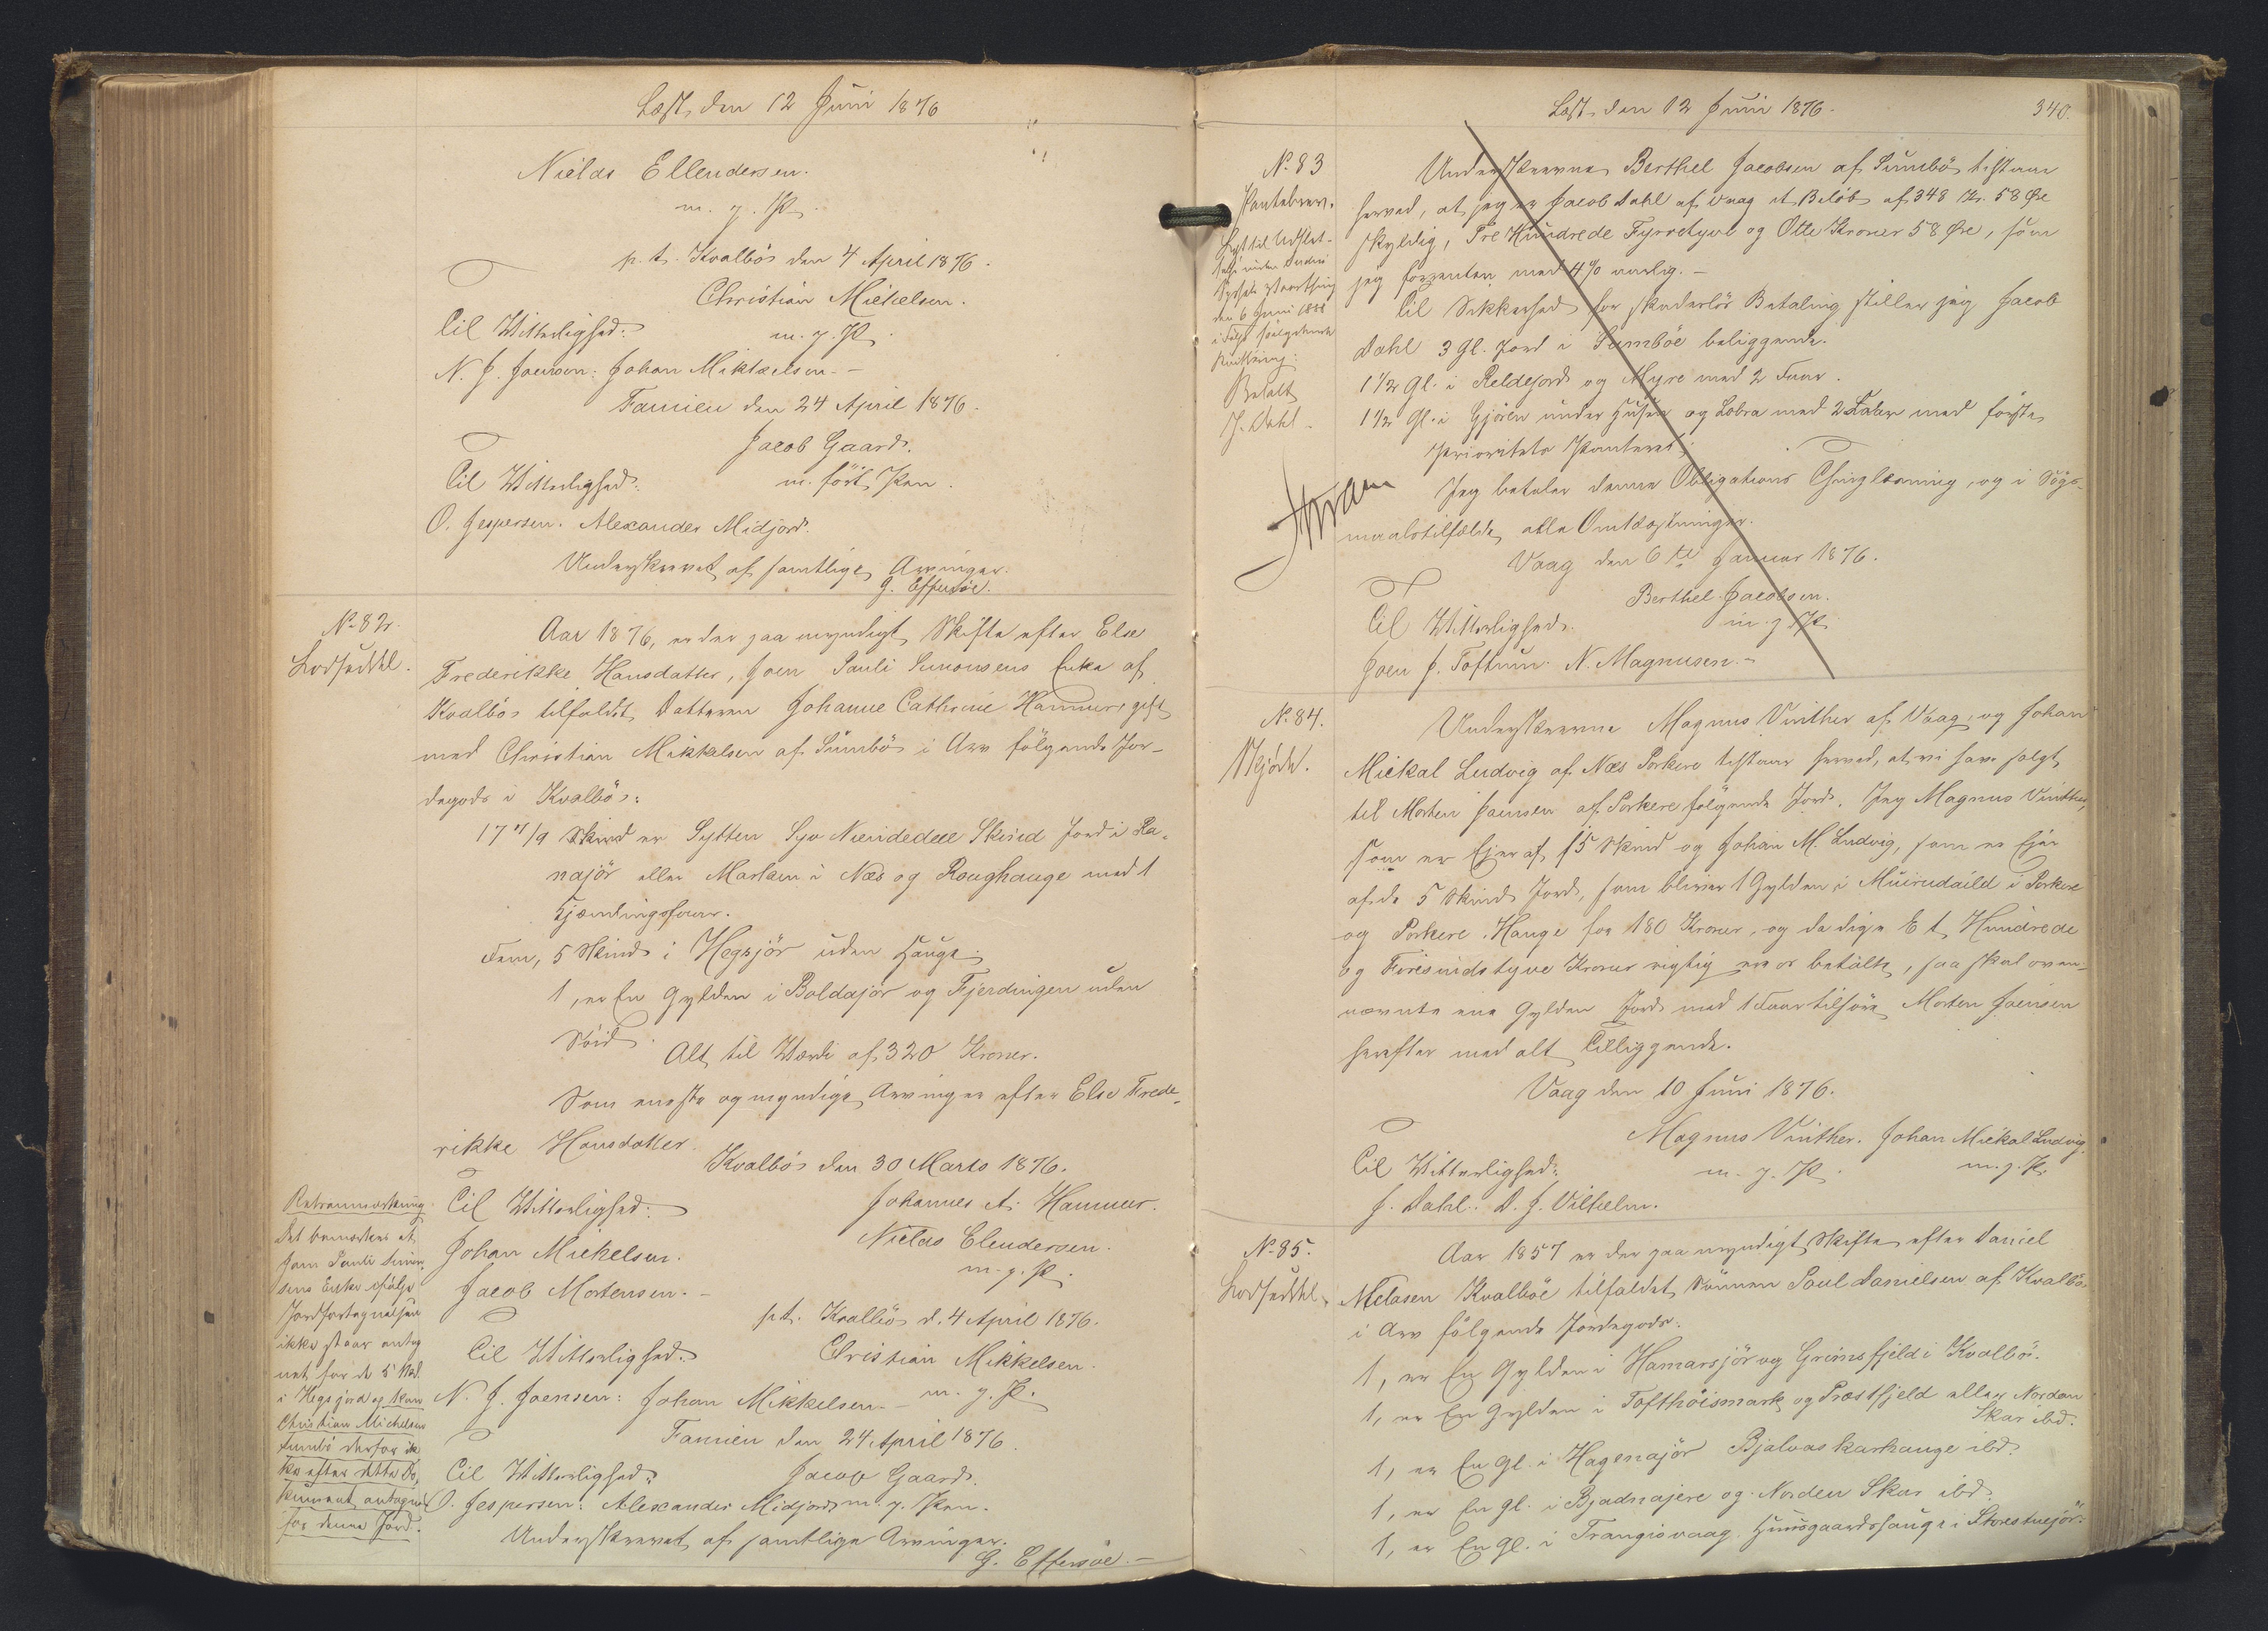 Læst den 12 Juni 1876
Nielas Ellendersen.
m. f. P.
p. t. Kvalbö den 4 April 1876.
Christian Mikkelsen.
Til Vitterlighed: m. f. P.
N. J. Joensen: Johan Mikkelsen. -
Famien den 24 April 1876.
Jacob Gaard.
Til Vitterlighed: m. ført Pen.
O. Jespersen. Alexander Midjord.
Underskrevet af samtlige Arvinger.
G. Effersöe.
No. 82.
Lodseddel.
Aar 1876, er der paa myndigt Skifte efter Else
Frederikke Hansdatter, Joen Pauli Simonsens Enke af
Kvalbö tilfaldt Datteren Johanne Cathrine Hammer, gift
med Christian Mikkelsen af Sumbö i Arv følgende Jor-
degods i Kvalbö:
17 7/9 Skind er Sytten Syv Niendedele Skind Jord i Ra-
najör eller Marlæn i Næs og Roughauge med 1
Gjemlingsfaar.
Fem, 5 Skind i Hegsjör uden Hauge
1, er En Gylden i Boldajör og Fjerdingen uden
Söid.
Alt til Værdi af 320 Kroner.
Som eneste og myndige Arvinger efter Else Frede-
rikke Hansdatter.
Kvalbö den 30 Marts 1876.
Til Vitterlighed: Johannes A. Hammer.
Johan Mickelsen. Nielas Elendersen.
Jacob Mortensen. - m. f. P.
p. t. Kvalbö d. 4 April 1876.
Til Vitterlighed: Christian Mikkelsen.
N. J. Joensen: Johan Mikkelsen. - m. f. P.
Famien den 24 April 1876.
Til Vitterlighed: Jacob Gaard.
O. Jespersen: Alexander Midjord m. f. Pen.
Underskrevet af samtlige Arvinger.
G. Effersöe. -
Retsanmærkning
Det bemærkes at
Joen Pauli Simon-
sens Enke ifølge
Jordfortegnelsen
ikke staar anteg
net for de 5 Skd
i Hegsjord og kan
Christian Michelsen
Sumbö derfor ik
ke efter dette Do-
kument antegnes
for denne Jord.
Læst den 12 Juni 1876.
340.
No. 83
Pantebrev.
Lyst til Udslet-
telse inden Suderö
Syssels Vaarthing
den 6 Juni 1888
i Følge saalydende
Kvittering:
Betalt
J. Dahl.
Underskrevne Berthel Jacobsen af Sumbö tilstaar
herved, at jeg er Jacob Dahl af Vaag et Beløb af 348 Kr. 58 Øre
skyldig, Tre Hundrede Fyrretyve og Otte Kroner 58 Øre, som
jeg forrenter med 4% aarlig. -
Til Sikkerhed for skadesløs Betaling stiller jeg Jacob
Dahl 3 Gl. Jord i Sumböe beliggende.
1 1/2 Gl. i Reldejord og Myre med 2 Faar.
1 1/2 Gl. i Gjören under Husen og Lobra med 2 Faar med første
Prioritets Panteret
Jeg betaler denne Obligations Thinglæsning, og i Søgs-
maalstilfælde, alle Omkostninger.
Vaag den 6te Januar 1876.
Berthel Jacobsen.
Til Vitterlighed: m. f. P.
Joen J. Toftum. N. Magnusen. -
No. 84.
Skjöde.
Underskrevne Magnus Vinther af Vaag, og Johan
Mickal Ludvig af Næs Porkere tilstaar herved, at vi have solgt
til Morten Joensen af Porkere følgende Jord. Jeg Magnus Vinther,
som er Ejer af 15 Skind og Johan M. Ludvig, som er Ejer
af de 5 Skind Jord, som bliver 1 Gylden i Muirudaild i Porkere
og Porkere Hauge for 180 Kroner, og da disse Et Hundrede
og Firesindstyve Kroner rigtig er os betalte, saa skal oven-
nævnte ene Gylden Jord med 1 Faar tilhøre Morten Joensen
herefter med alt Tilliggende.
Vaag den 10 Juni 1876.
Magnus Vinther. Johan Mickal Ludvig.
Til Vitterlighed: m. f. P. m. f. P.
J. Dahl. D. J. Vilhelm.
No. 85.
Lodseddel.
Aar 1857 er der paa myndigt Skifte efter Daniel
Nielasen Kvalböe tilfaldet Sönnen Poul Danielsen af Kvalbö
i Arv følgende Jordegods.
1, er En Gylden i Hamarsjör og Grimsfjeld i Kvalbö.
1, er En Gylden i Tofthöismark og Præstfjeld eller Norden
Skar ibd.
1, er En Gl. i Hagenajör Bjalvaskarhauge ibd.
1, er En Gl. i Bjadnajere og Norden Skar ibd.
1, er En Gl. i Trangisvaag Huusgaardshauge i Storestuejör.